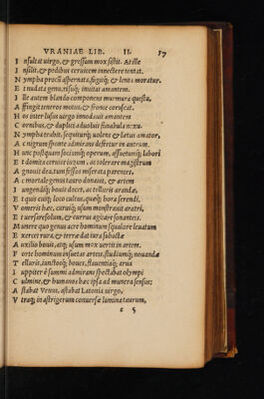 VRANIAE LIB. II. 57
I nsultat uirgo, & gressum mox sistit. At ille
I nsilit, & pedibus ceruicem innectere tentat.
N ympha procul aspernata, fugitq; & lentè moratur.
E t nudata genu, risuq; inuitat amantem.
I lle autem blando componens murmura questu,
A ffingit teneros motus, & cornu coruscat.
H os inter lusus uirgo innodauit amantem
C ornibus, & duplici aduoluit uincula nexu.
N ympha trahit, sequiturq; uolens & lætus amator,
A c nigrum sponte admirans defertur in antrum.
H unc postquam sociumq; operum, assuetumq; labori
E t domita ceruice iugum, ac tolerare magistram
A gnouit dea, tum fessos miserata parentes,
A c mortale genus tauro donauit, & artem
I ungendiq; bouis docet, ac telluris arandæ,
E t quis cuiq; loco cultus, quæq; hora serendi,
V omeris hinc, curuiq; usum monstrauit aratri,
E t uersare solum, & currus agitare sonantes.
M unere quo genus acre hominum squalore leuatum
E xercet rura, & terræ dat iura subactæ
A uxilio bouis, atq; usum mox uertit in artem.
F orte hominum insuetas artes, studiumq; nouandæ
T elluris, iunctosq; boues, stuuentiaq; arua
I uppiter è summi admirans spectabat olympi
C ulmine, & humanos hæc ipsa ad munera sensus:
A stabat Venus, astabat Latonia uirgo,
V traq; in astrigerum conuersæ lumina taurum,